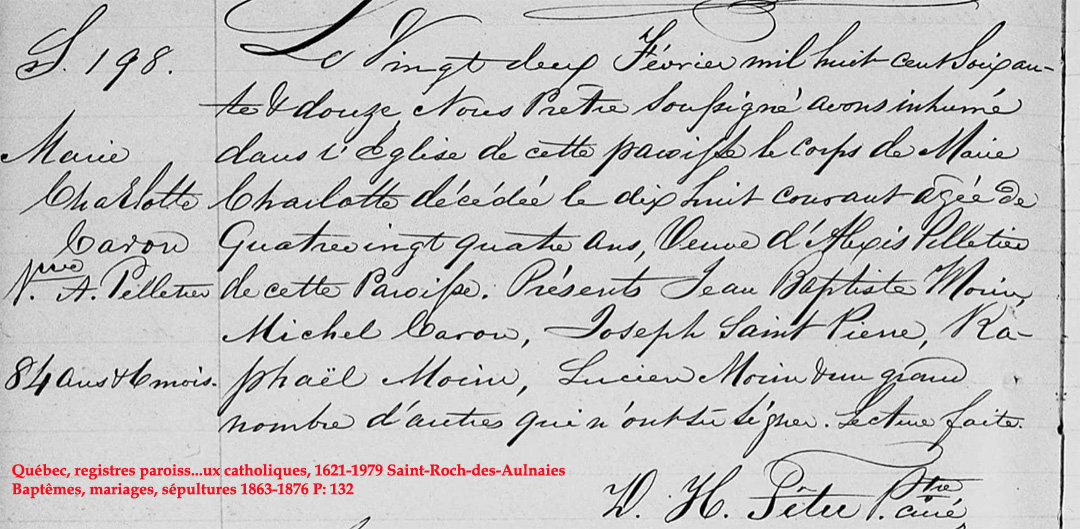 S. 198.
Marie
Charlotte
Caron
Vve A. Pelletier
84 ans & 6 mois.
Le Vingt deux Février mil huit cent Soixan-
te & douze Nous Prêtre Soussigné avons inhumé
dans l'Église de cette paroisse le corps de Marie
Charlotte décédée le dix huit courant agée de
Quatrevingt quatre ans, Veuve d'Alexis Pelletier
de cette Paroisse. Présents Jean Baptiste Morin,
Michel Caron, Joseph Saint Pierre, Ra-
phaël Morin, Lucien Morin & un grand
nombre d'autres qui n'ont su signer. Lecture faite.
D. H. Têtu Ptre
curé
Québec, registres paroiss...ux catholiques, 1621-1979 Saint-Roch-des-Aulnaies
Baptêmes, mariages, sépultures 1863-1876 P: 132